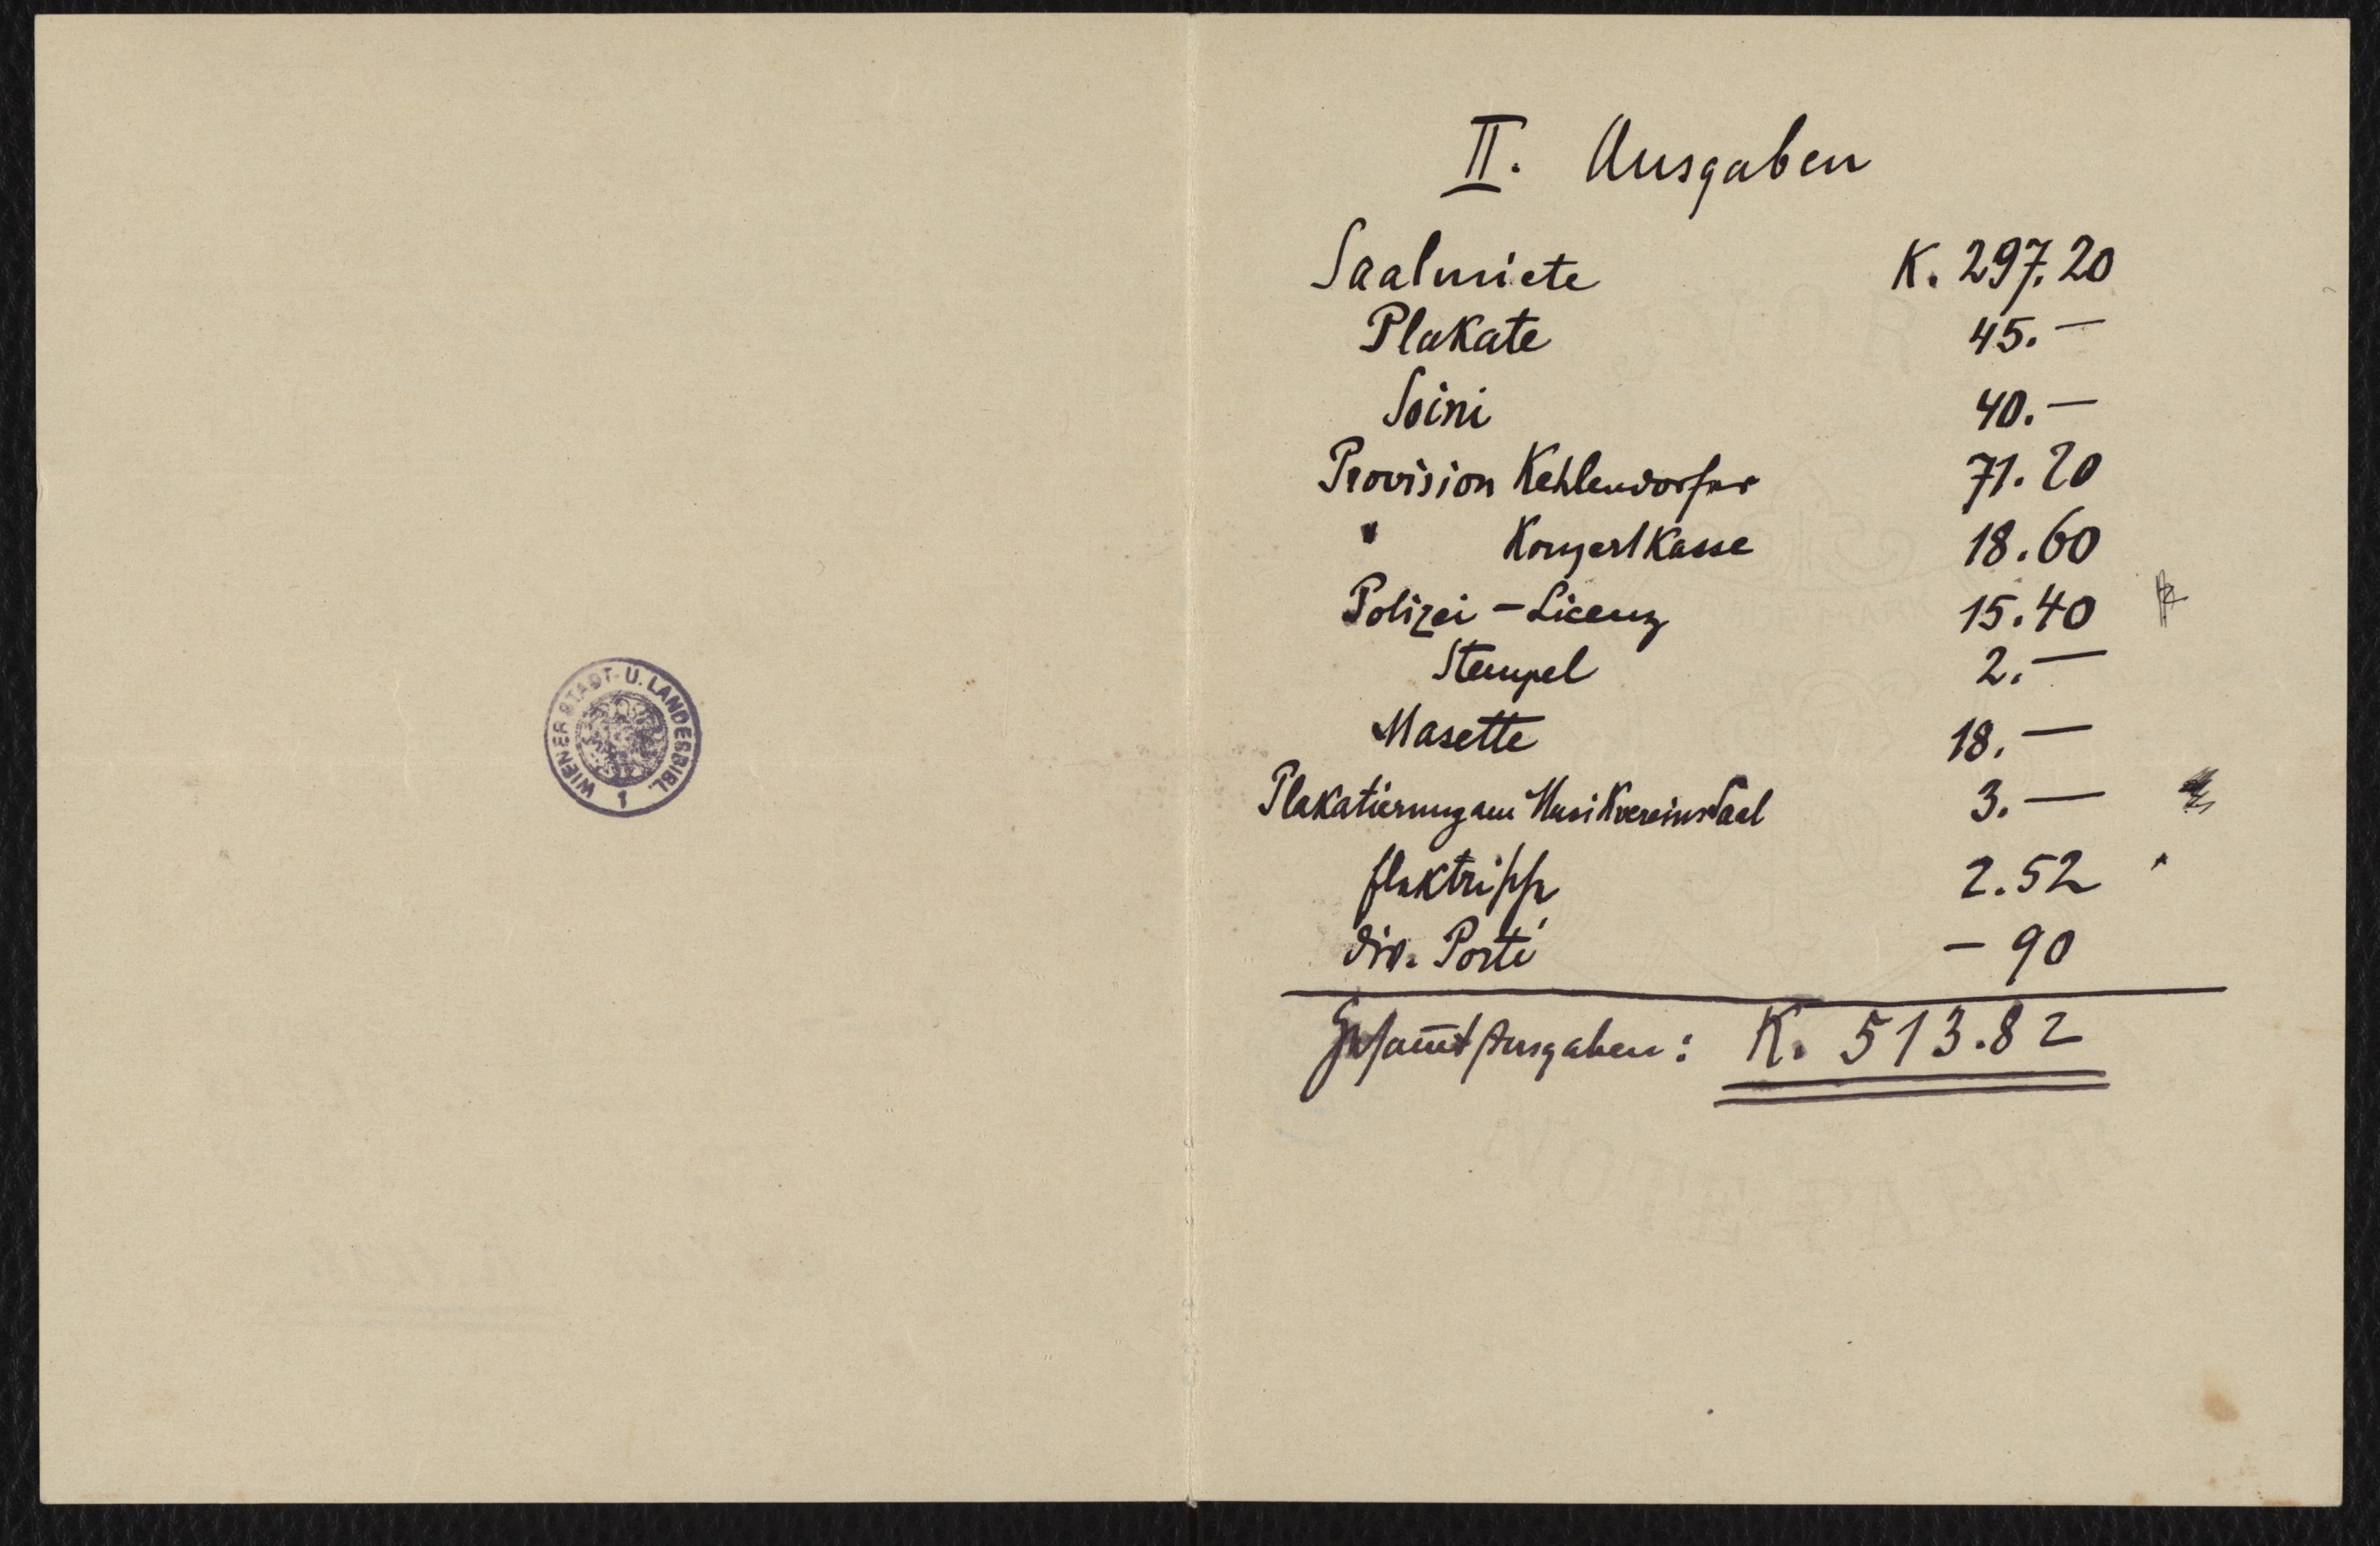 WIENER STADT- U. LANDESBIBL.
1
II. Ausgaben
Saalmiete K. 297.20
Plakate 45.—
Soini 40.—
Provision Kehlendorfer 71.20
" Konzertkasse 18.60
Polizei - Licenz 15.40
Stempel 2.—
Masette 18.—
Plakatierung am Musikvereinssaal 3.—
2.52
div. Porti — 90
Gesam̅t Ausgaben: K. 513.82